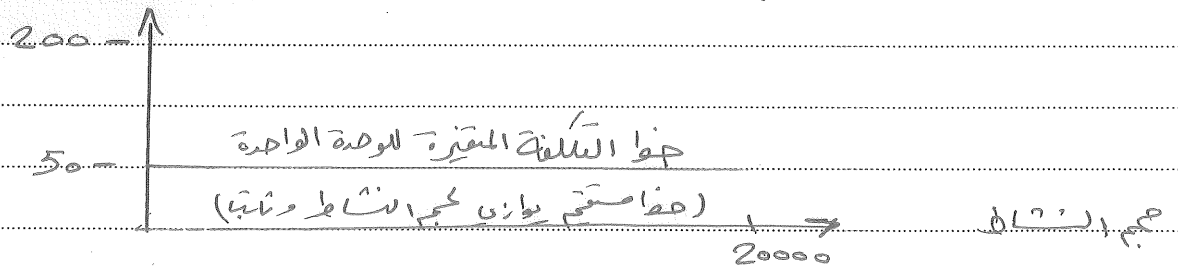 200
خط التكلفة المتغيرة للوحدة الواحدة
50
(خط مستقيم يوازي لحجم النشاط وثابت)
حجم النشاط
20000